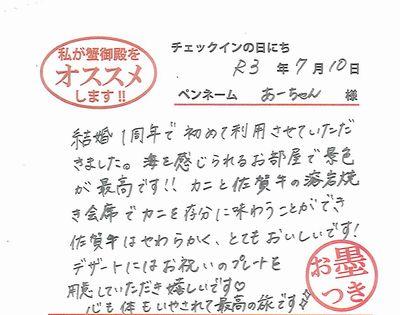 私が蟹御殿を
オススメ
します!!
チェックインの日にち
R3 年 7 月 10 日
ペンネーム あーちゃん 様
結婚1周年で初めて利用させていただ
きました。海を感じられるお部屋で景色
が最高です!! カニと佐賀牛の溶岩焼
き会席でカニを存分に味わうことができ
佐賀牛はやわらかく、とてもおいしいです!
デザートにはお祝いのプレートを
用意していただき嬉しいです♡
心も体もいやされて最高の旅です☆
お墨
つき